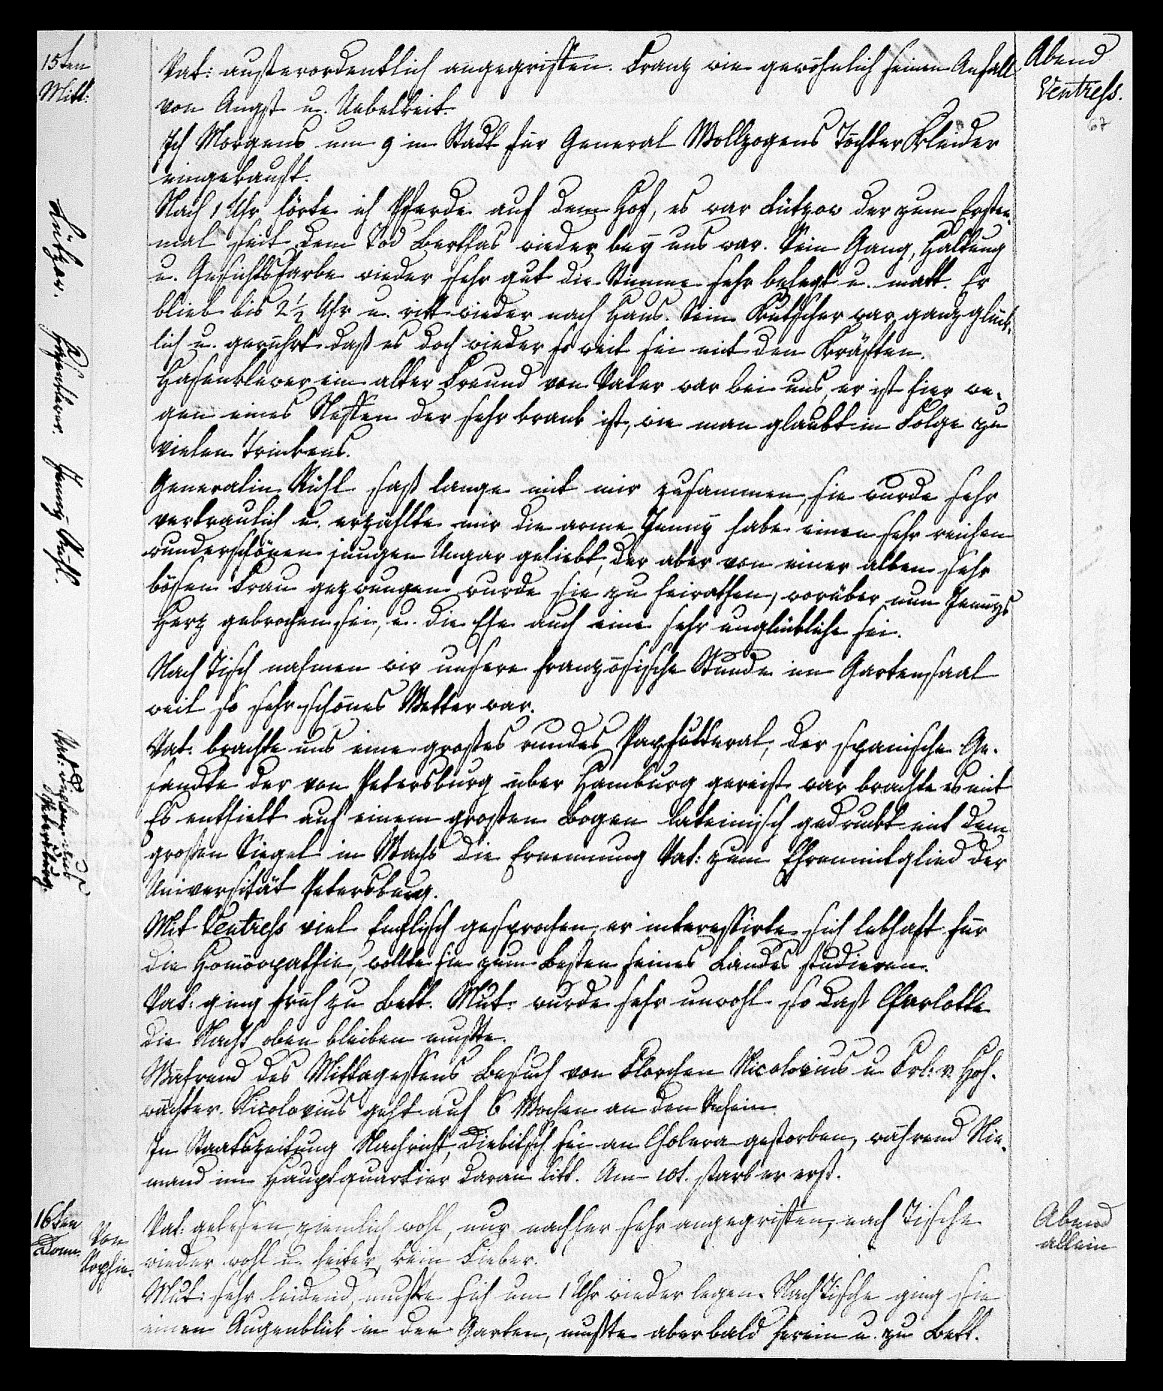 15ten
Mitt:
Vat: außerordentlich angegriffen. Franz wie gewöhnlich seinen Anfall
von Angst u. Uebelkeit.
Ich Morgens um 9 in Stadt für General Wollzogens Töchter Kleider
eingekauft.
Nach 1 Uhr hörte ich Pferde auf dem Hof, es war Lützow der zum Ersten-
mal seit dem Tod Berthas wieder bey uns war. Sein Gang, Haltung
u. Gesichtsfarbe wieder sehr gut die Stimme sehr belegt u. matt. Er
blieb bis 2 1/2 Uhr u. ritt wieder nach Haus. Sein Kutscher war ganz glück-
lich u. gerührt daß es doch wieder so weit sei mit den Kräften.
Hasenklewer ein alter Freund von Vater war bei uns, er ist hier we-
gen eines Neffen der sehr krank ist, wie man glaubt in Folge zu
vielen Trinkens.
Generalin Rühl saß lange mit mir zusammen, sie wurde sehr
vertraulich u. erzählte mir die arme Jenny habe einen sehr reichen
wunderschönen jungen Ungar geliebt, der aber von einer alten sehr
bösen Frau gezwungen wurde sie zu heirathen, worüber nun Jennys
Herz gebrochen sei, u. die Ehe auch eine sehr unglückliche sei.
Nach Tisch nahmen wir unsere französische Stunde im Gartensaal
weil so sehr schönes Wetter war.
Vat: brachte uns eine großes rundes Pappfutteral, der spanische Ge-
sandte der von Petersburg über Hamburg gereist war brachte es mit
Es enthielt auf einem großen Bogen lateinisch gedruckt mit dem
großen Siegel in Wachs die Ernennung Vat: zum Ehrenmitglied der
Universität Petersburg.
Mit Ventress viel Englisch gesprochen, er interessirte sich lebhaft für
die Homöopathie, wollte sie zum Besten seines Landes studieren.
Vat: ging früh zu Bett. Mut: wurde sehr unwohl so daß Charlotte
die Nacht oben bleiben mußte.
Während des Mittagessens Besuch von Florchen Nicolovius u Frl: v. Hoh-
wächter. Nicolovius geht auf 6 Wochen an den Rhein.
In Staatszeitung Nachricht, Diebitsch sei an Cholera gestorben, während Nie-
mand im Hauptquartier daran litt. Am 10t. starb er erst.
Abend
Ventress.
67
Lützow. Hasenklewer. Jenny Rühl.
Petersburg.
16ten
Donn:
Von
Sophie.
Vat: gelesen, ziemlich wohl, nur nachher sehr angegriffen, nach Tische
wieder wohl u. heiter, kein Fieber.
Mut: sehr leidend, mußte sich um 1 Uhr wieder legen. Nach Tische ging sie
einen Augenblick in den Garten, mußte aber bald herein u. zu Bett.
Abend
allein